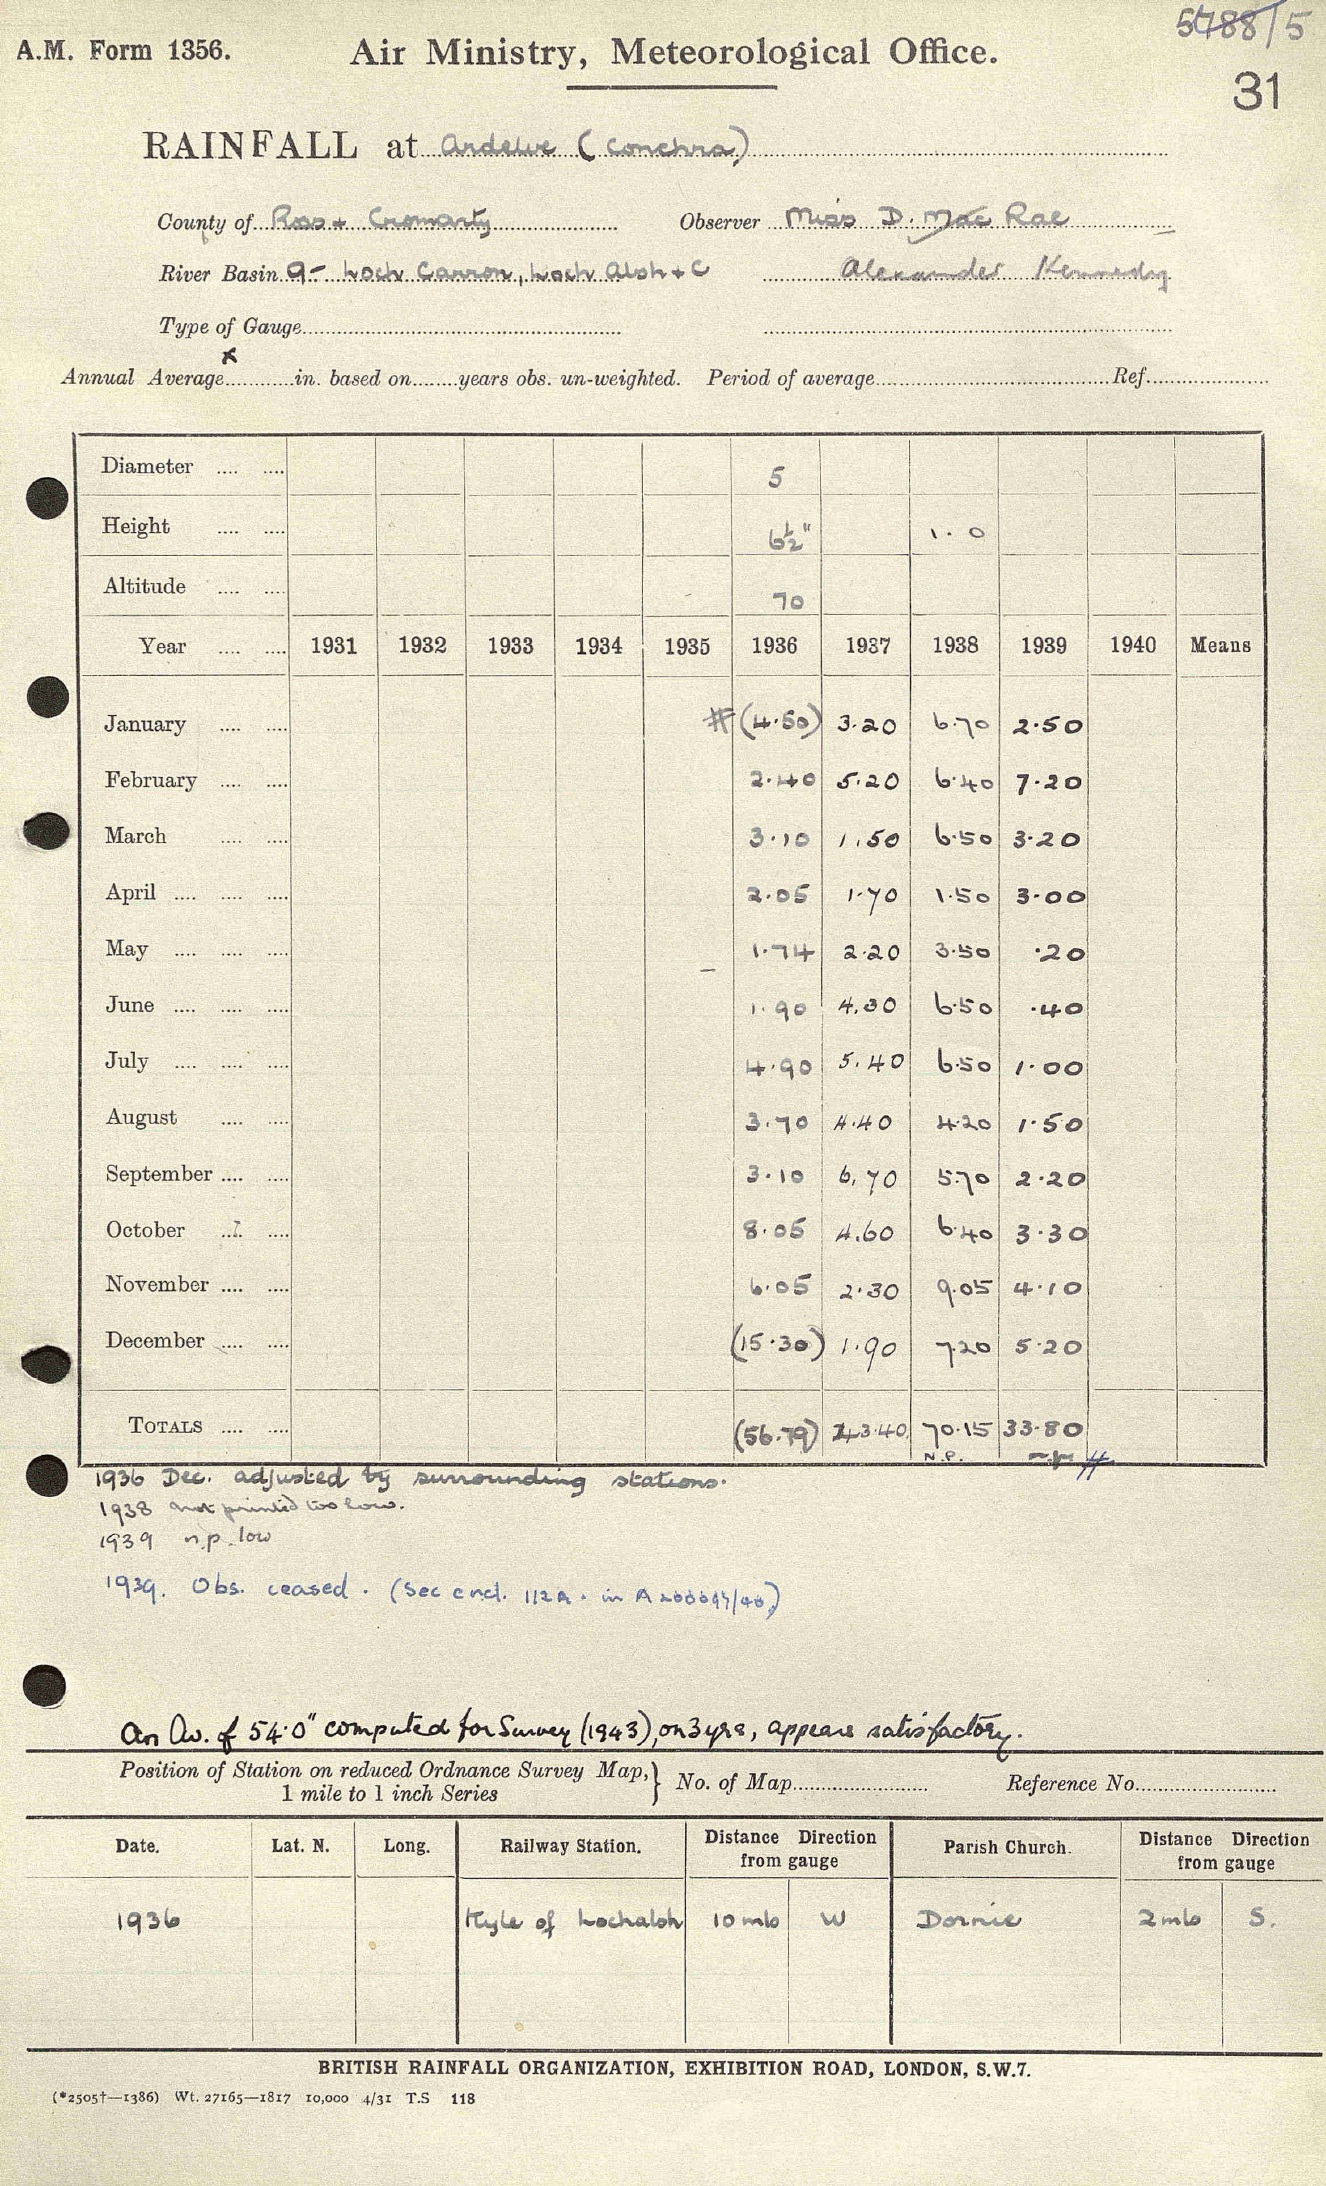 5788/5
A.M. Form 1356. Air Ministry, Meteorological Office.
31
RAINFALL at Ardelve (Conchra)
County of Ross + Cromarty Observer Miss D. Mac Rae
River Basin 9- Loch Carron, Loch Alsh + C Alexander Kennedy
Type of Gauge
x
Annual Average in. based on years obs. un-weighted. Period of average Ref.
Diameter .... .... 5
Height .... .... 6½" 1.0
Altitude .... .... 70
Year .... .... 1931 1932 1933 1934 1935 1936 1937 1938 1939 1940 Means
January .... .... #(4.50) 3.20 6.70 2.50
February .... .... 2.40 5.20 6.40 7.20
March .... .... 3.10 1.50 6.50 3.20
April .... .... .... 2.05 1.70 1.50 3.00
May .... .... .... 1.74 2.20 3.50 .20
June .... .... .... 1.90 4.30 6.50 .40
July .... .... .... 4.90 5.40 6.50 1.00
August .... .... 3.70 4.40 4.20 1.50
September .... .... 3.10 6.70 5.70 2.20
October .... .... 8.05 4.60 6.40 3.30
November .... .... 6.05 2.30 9.05 4.10
December .... .... (15.30) 1.90 7.20 5.20
TOTALS .... .... (56.79) 43.40 70.15 33.80
N.P. n.p. #
1936 Dec. adjusted by surrounding stations.
1938 not printed too low.
1939 n.p. low
1939. Obs. ceased. (See encl. 112A. in
An Av. of 54.0" computed for Survey (1943), on 3 yrs, appears satisfactory.
Position of Station on reduced Ordnance Survey Map,} No. of Map Reference No.
1 mile to 1 inch Series
Date. Lat. N. Long. Railway Station. Distance Direction Parish Church. Distance Direction
from gauge from gauge
1936 Kyle of Lochalsh 10 mls W Dornie 2 mls S.
BRITISH RAINFALL ORGANIZATION, EXHIBITION ROAD, LONDON, S.W.7.
(*2505†—1386) Wt. 27165—1817 10,000 4/31 T.S 118